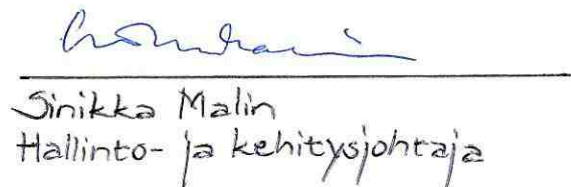 Sinikka Malin
Hallinto- ja kehitysjohtaja